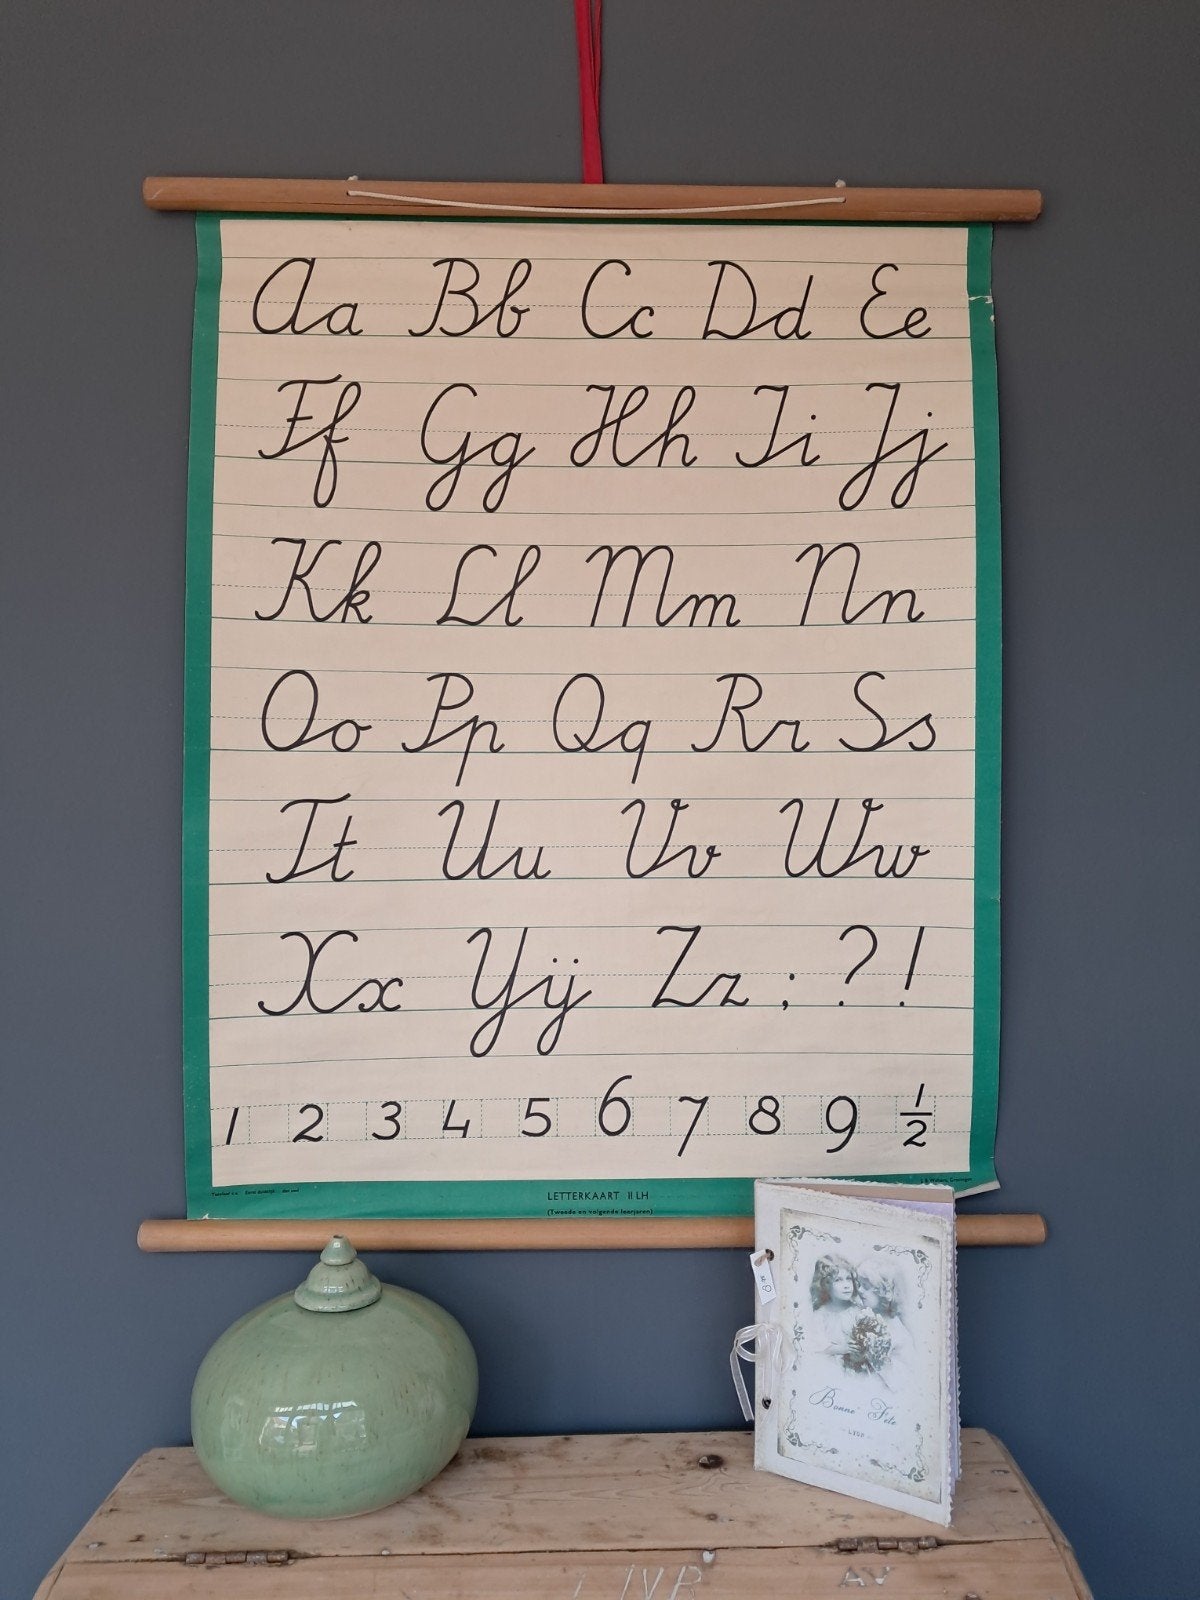 Aa Bb Cc Dd Ee
Ff Gg Hh Ii Jj
Kk Ll Mm Nn
Oo Pp Qq Rr Ss
Tt Uu Vv Ww
Xx Yÿ Zz ; ? !
1 2 3 4 5 6 7 8 9 1/2
J. B. Wolters, Groningen
LETTERKAART II LH
(Tweede en volgende leerjaren)
Bonne Fête
LYON
AV